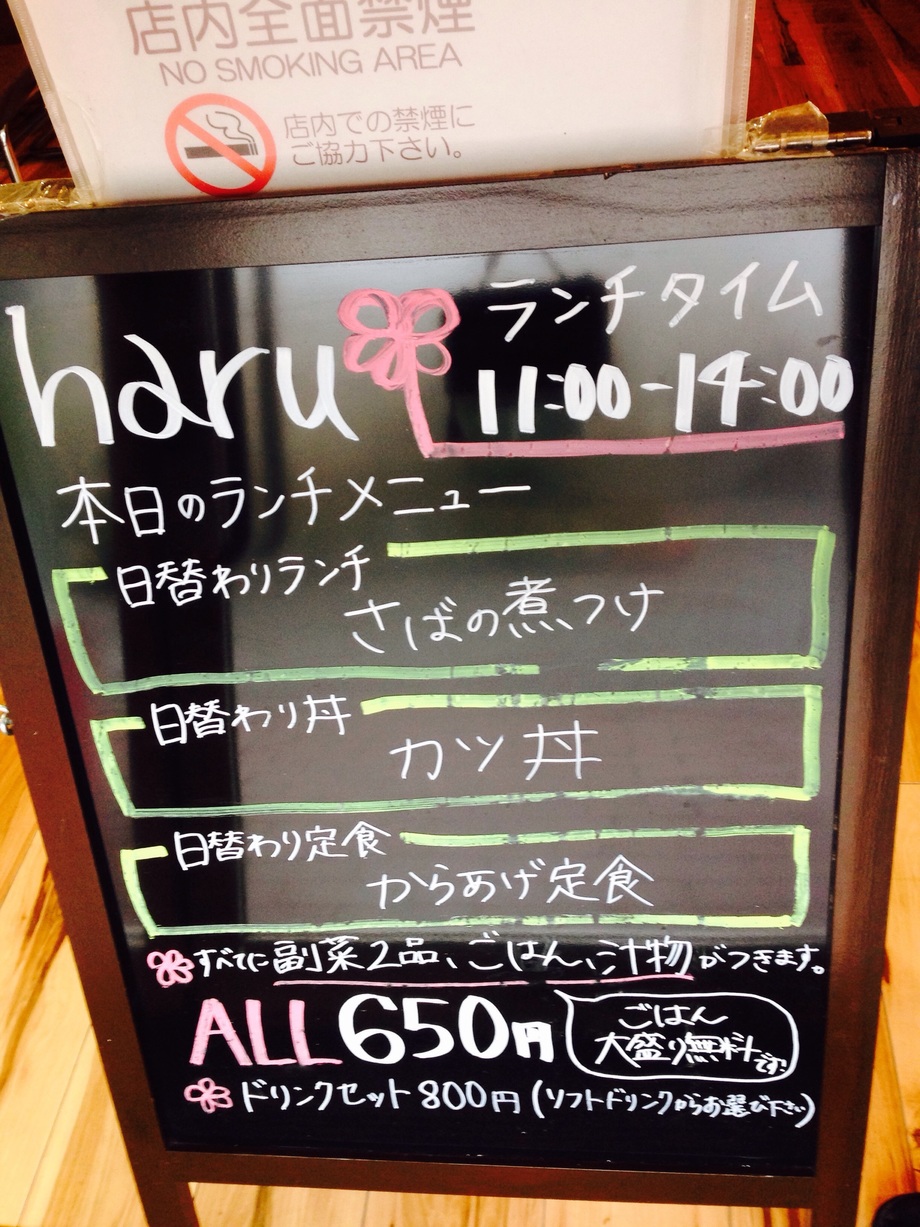 店内全面禁煙
NO SMOKING AREA
店内での禁煙に
ご協力下さい。
haru
ランチタイム
11:00-14:00
本日のランチメニュー
日替わりランチ
さばの煮つけ
日替わり丼
カツ丼
日替わり定食
からあげ定食
すべてに副菜2品、ごはん、汁物がつきます。
ALL 650円
ごはん
大盛り無料
です!
ドリンクセット 800円 (ソフトドリンクからお選び下さい)